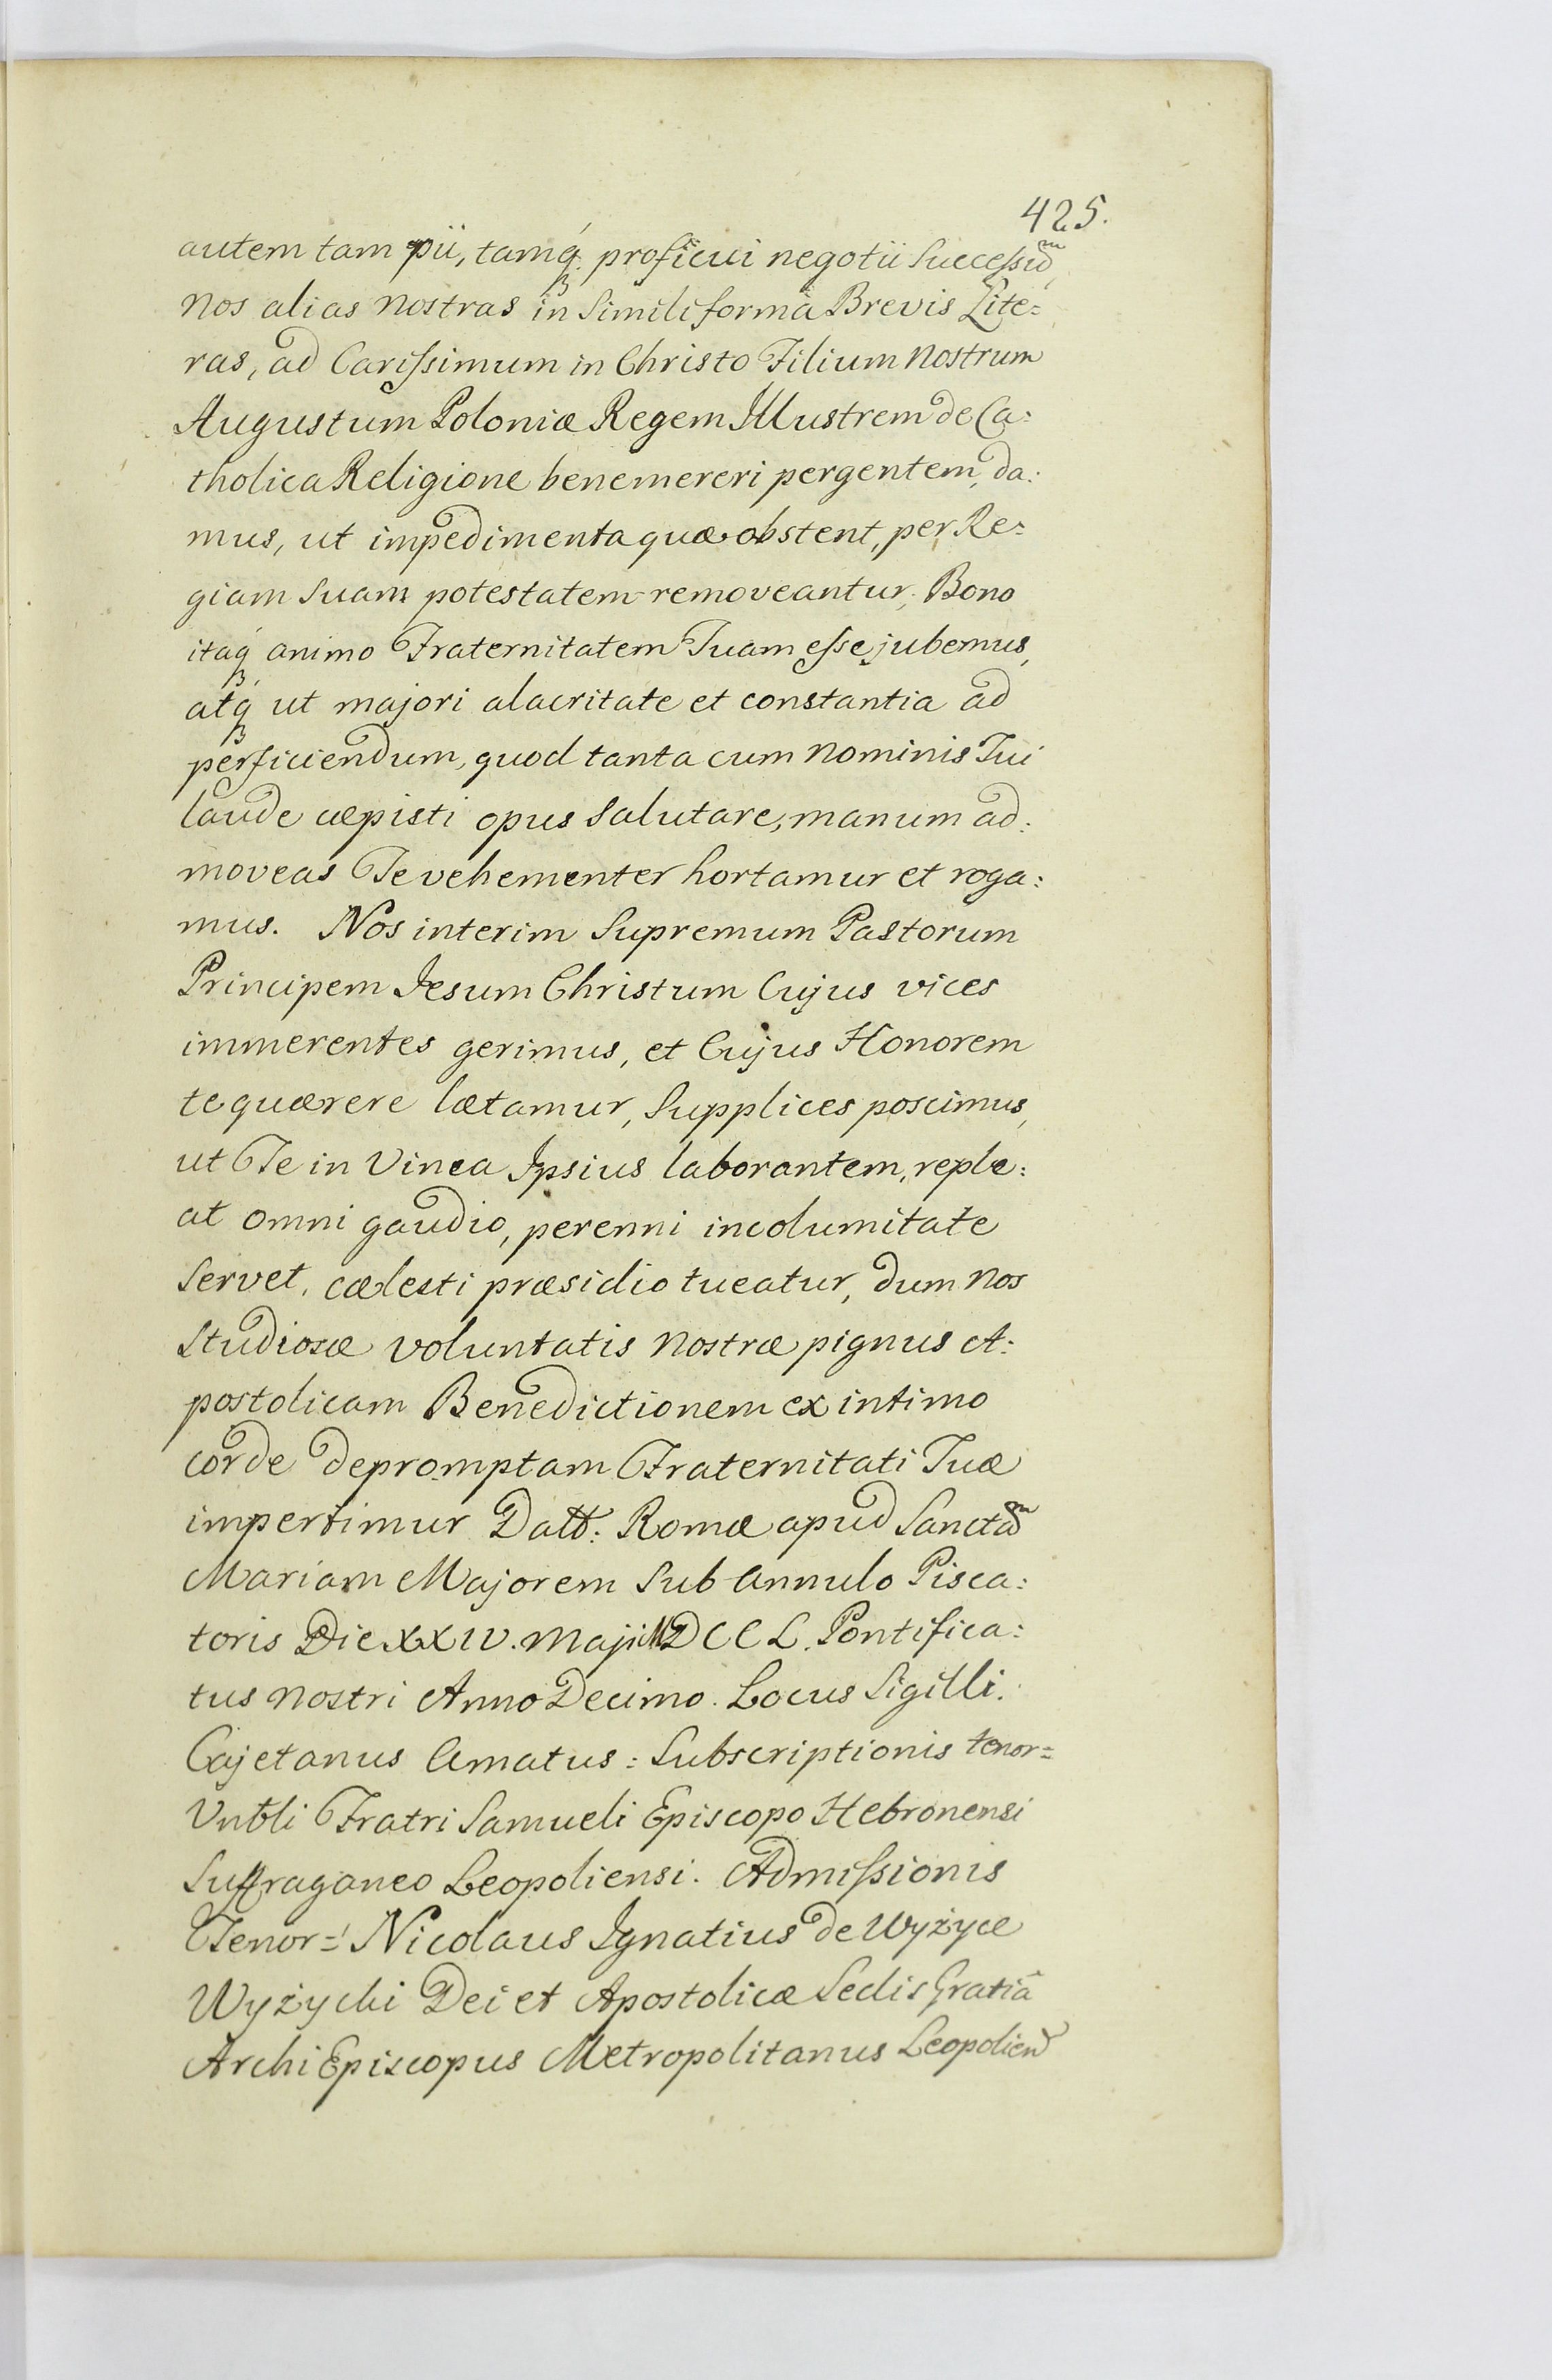 425.
autem tam pii, tamq́ꝫ proficui negotii Succeſsūm
nos alias nostras in Simili forma Brevis Lite=
ras, ad Cariſsimum in Christo Filium Nostrum
Augustum Poloniæ Regem Illustrem de Ca:
tholica Religione benemereri pergentem, da:
mus, ut impedimenta quæ obstent, per Re=
giam Suam potestatem removeantur, Bono
itaq́ꝫ animo Fraternitatem Tuam eſse jubemus,
atq́ꝫ ut majori alacritate et constantia ad
perficiendum, quod tanta cum Nominis Tui
laude cæpisti opus Salutare, manum ad:
moveas Te vehementer hortamur et roga:
mus. Nos interim Supremum Pastorum
Principem Iesum Christum Cujus vices
immerentes gerimus, et Cujus Honorem
te quærere lætamur, Supplices poscimus,
ut Te in Vinea Ipsius laborantem, reple:
at omni gaudio, perenni incolumitate
Servet, cælesti præsidio tueatur, dum nos
Studiosæ voluntatis Nostræ pignus A:
postolicam Benedictionem ex intimo
corde depromptam Fraternitati Tuæ
impertimur Datt: Romæ apud Sanctam
Mariam Majorem Sub Annulo Pisca:
toris Die XXIV. Maji MDCCL. Pontifica:
tus nostri Anno Decimo. Locus Sigilli.
Cajetanus Amatus: Subscriptionis tenor=
Vnbli Fratri Samueli Episcopo Hebronensi
Suffraganeo Leopoliensi. Admiſsionis
Tenor= Nicolaus Ignatius de Wyżyce
Wyżycki Dei et Apostolicæ Sedis Gratiâ
ArchiEpiscopus Metropolitanus Leopolien